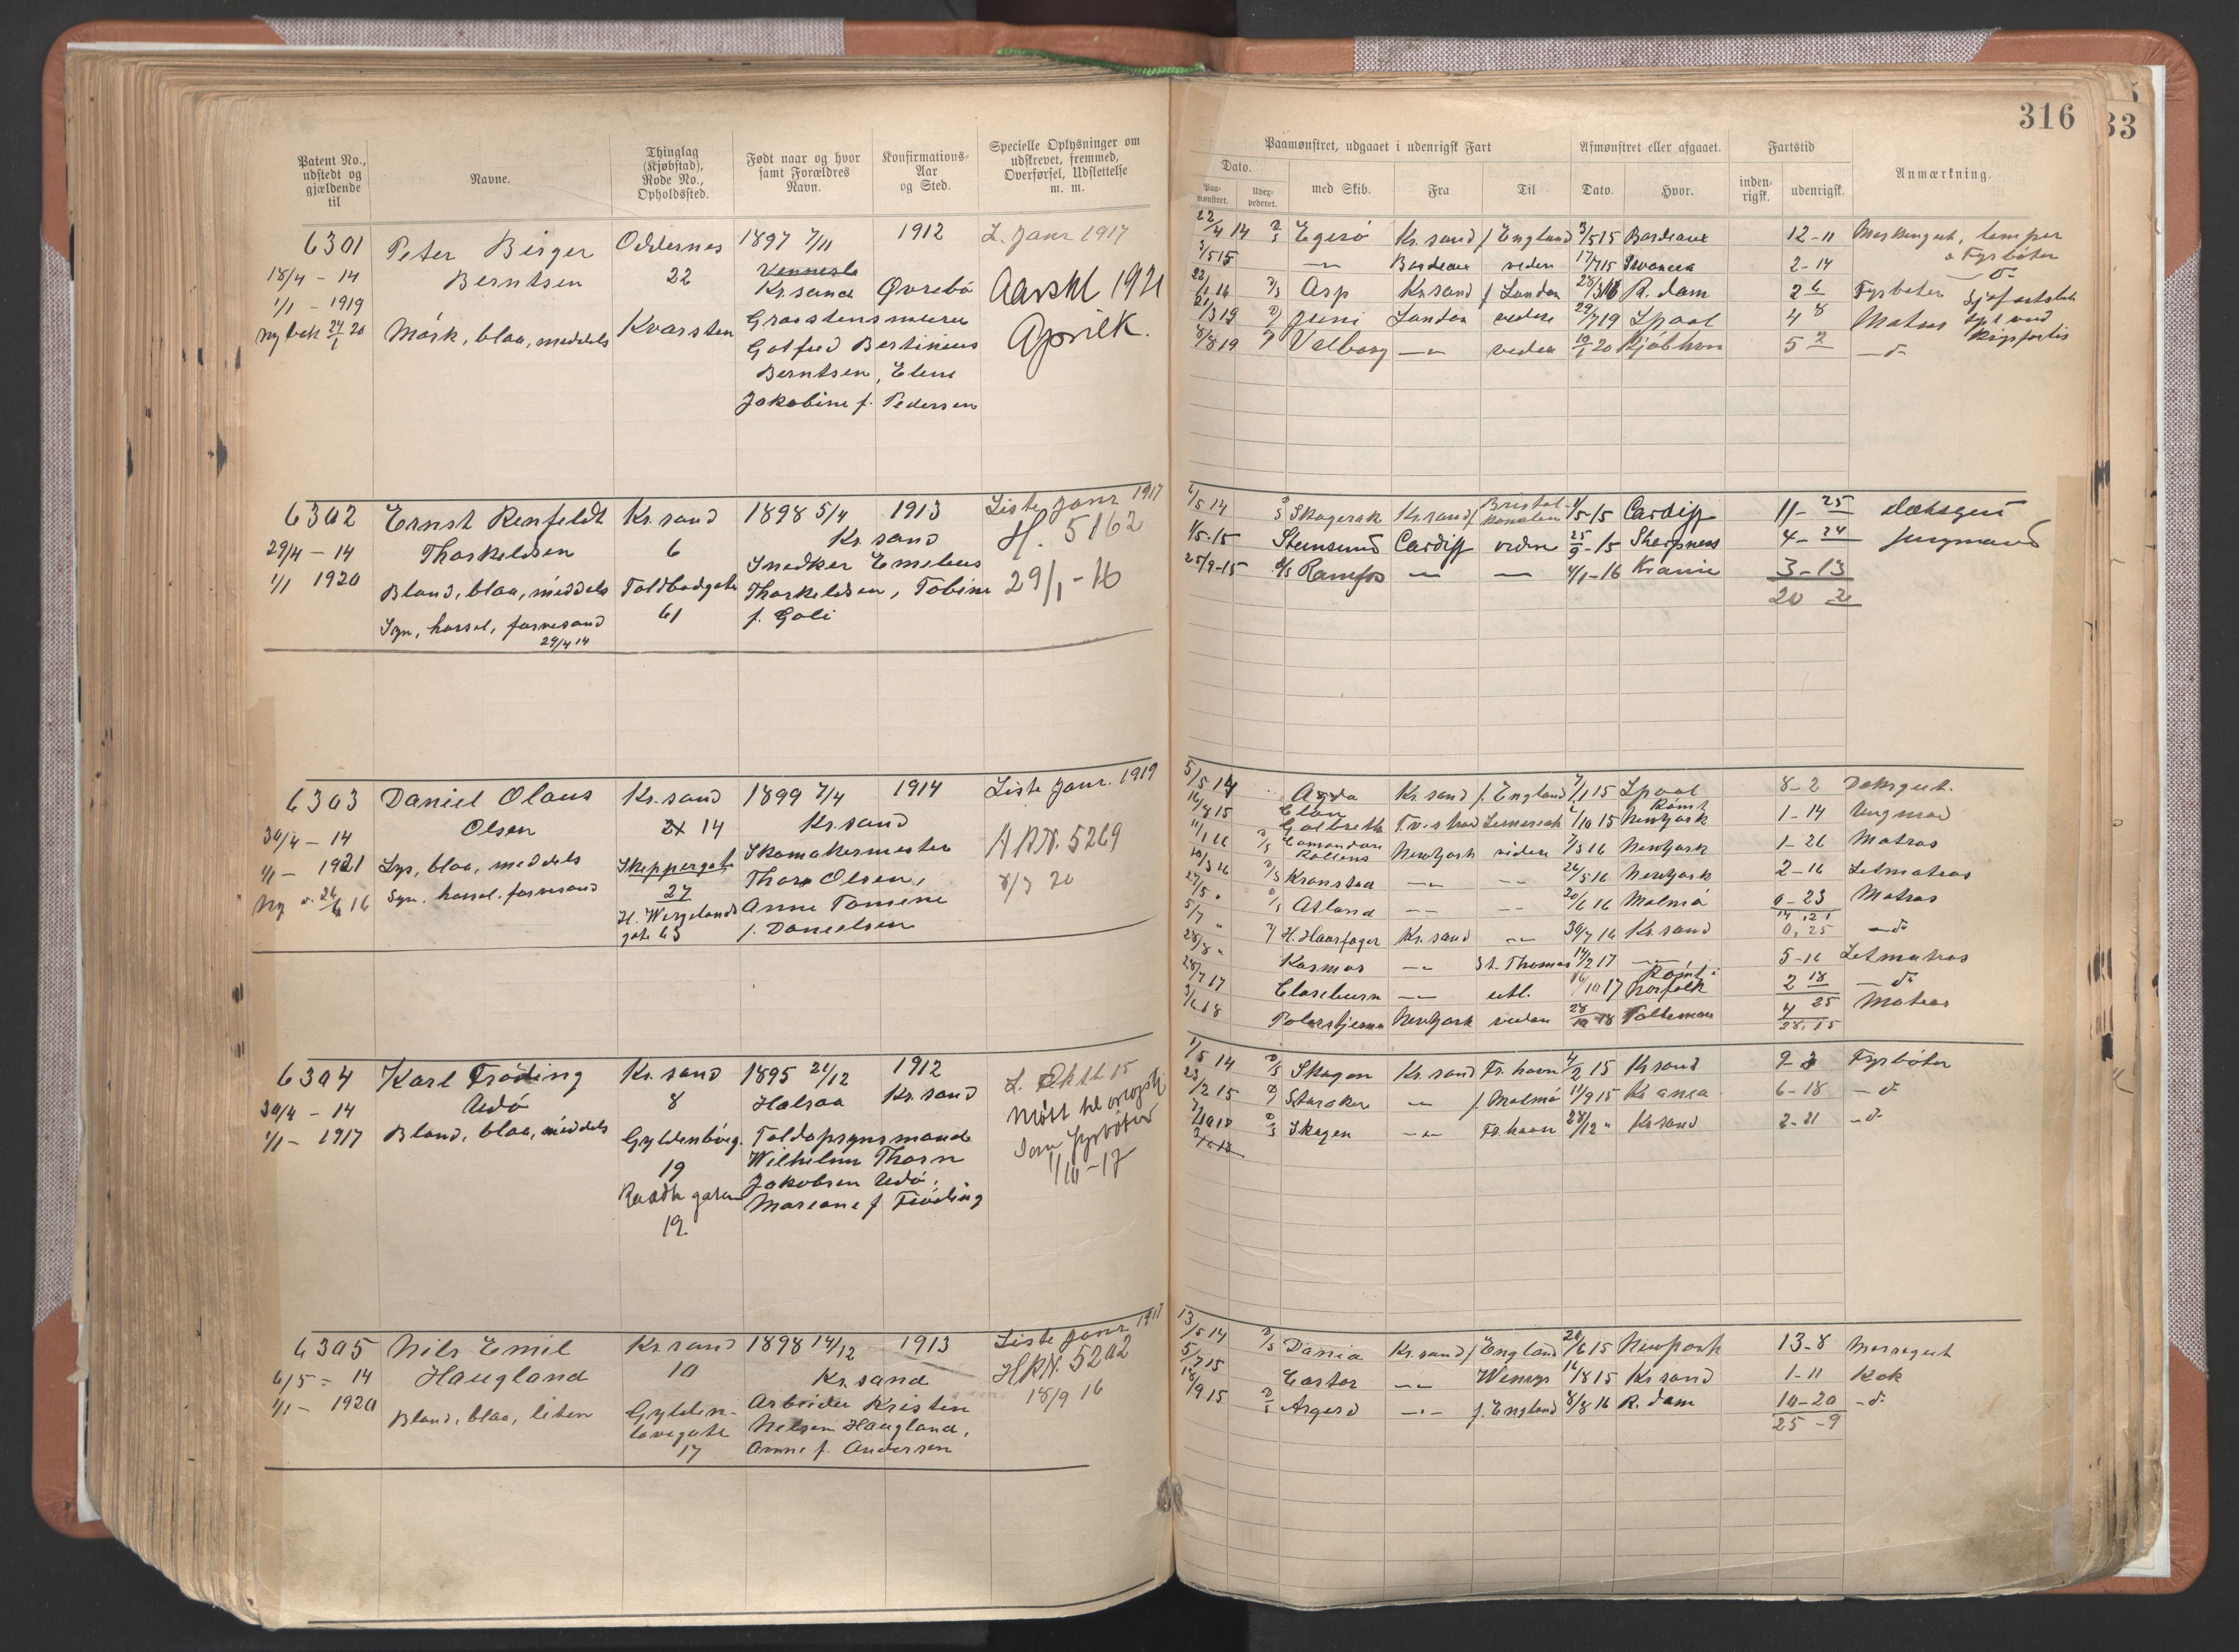 316
33
Patent No., udstedt og gjældende til
Navne.
Thinglag (Kjøbstad), Rode No., Opholdssted.
Født naar og hvor samt Forældres Navn.
Konfirmations-Aar og Sted.
Specielle Oplysninger om udskrevet, fremmed, Overførsel, Udslettelse m. m.
Paamønstret, udgaaet i udenrigsk Fart
Dato.
Paamønstret.
med Skib.
Fra
Til
Afmønstret eller afgaaet.
Dato.
Hvor.
Fartstid
indenrigsk.
udenrigsk.
Anmærkning.
6301 Peter Birger Oddernes 1897 7/11 1912 L. Janr 1917
18/4 - 14 Berntsen 22 Vennesla
1/1 - 1919 Kr.sand Øvrebø Aarskl 1921
Ny bok 24/1 20 Mørk, blaa, middels Kvarsten Graastensmurer Aprilk.
Gotfred Bertinius
Berntsen, Eline
Jakobine f. Pedersen
22/4 14 Egerø Kr.sand f England 3/5 15 Bordeaux 12-11 Maskingut, lemper
3/5 15 -"- Bordeaux viden 17/7 15 Swansea 2-14 o Fyrbøter
Asp Kr.sand f London 28/3 16 R.dam 2 6 Fyrbøter
21/3 19 Juni London videre 29/7 19 Lpool 4 8 Matros
8/8 19 Valborg -"- viden 10/1 20 Kjøbhvn 5 2 -d-
6302 Ernst Renfeldt Kr.sand 1898 5/4 1913 Liste Janr 1917
29/4 - 14 Thorkeldsen 6 Kr.sand H. 5162
1/1 1920 Bland, blaa, middels Toldbodgate Snedker Emelius 29/1 - 16
Syn, hørsel, farvesand 61 Thorkeldsen, Tobine
29/4 14 f. Goli
1/5 14 Skagerak Kr.sand f Bristolkanalen 1/5-15 Cardiff 11-25 Dæksgut
1/5-15 Steinsund Cardiff viden 25/9-15 Sharpness 4-24 Jungmand
25/9-15 Ramfos — — 4/1-16 Kr.ania 3-13
20 2
6303 Daniel Olaus Kr.sand 1899 7/4 1914 Liste Janr. 1919
30/4 - 14 Olsen 14 Kr.sand
1/1 - 1921 Lys, blaa, middels Skippergate Skomakermester 5269
Syn, hørsel, farvesand 27 Thor Olsen, 8/3 20
H. Wergelands Anne Tomine
gate 63 f. Danielsen
5/5 14 Agda Kr.sand f. England 7/1 15 Lpool 8-2 Dæksgut.
16/8 15 Elan Galbreth 1/10 15 New York 1-14 Ungmand
11/1 16 New York videre 7/3 16 New York 1-26 Matros
10/3 16 Kronstad -"- -"- 26/5 16 New York 2-16 Letmatros
27/5 " Atland -"- -"- 20/6 16 Malmø 0-23 Matros
14,21
5/7 " H. Haarfager Kr.sand -"- 30/7 16 Kr.sand 0,25 -d-
28/8 " Kosmos -"- St. Thomas 14/2 17 -"- 5-16 Letmatros
28/7 17 Closeburn -"- utl. 16/10 17 Norfolk 2 18 -d-
Polarstjernen New York viden 28/10 18 Baltimore 4 25 Matros
28.15
6304 Karl Frøding Kr.sand 1895 21/12 1912
30/4 - 14 Udø 8 Halsaa Kr.sand
1/1 - 1917 Bland, blaa, middels Gyldenløvg. Toldopsynsmand
19 Wilhelm Thorn
Raadh gaten Jakobsen Udø,
19 Mariane f Frøding
Møtt til orlogstj.
som fyrbøter
1/10 - 17
1/5 14 Skagen Kr.sand Fr.havn 4/2 15 Kr.sand 9-3 Fyrbøter
23/2 15 -"- f. Malmø 11/9 15 Kr.ania 6-18 -d-
Skagen -"- Fr.havn 28/12 " Kr.sand 2-21 -d-
6305 Nils Emil Kr.sand 1898 14/12 1913 Liste Janr. 1917
6/5 - 14 Haugland 10 Kr.sand 5202
1/1 - 1920 Bland, blaa, liten Gyldenløvegate Arbeider Kristen 18/9 16
17 Nelsen Haugland,
Anne f. Andersen
13/5 14 Dania Kr.sand f England 20/6 15 Newport 13-8 Messegut
5/7 15 Castor -"- Wemys 16/8 15 Kr.sand 1-11 Kok
18/9 15 Asgerd -"- f. England 8/8 16 R.dam 10-20 -d-
25-9